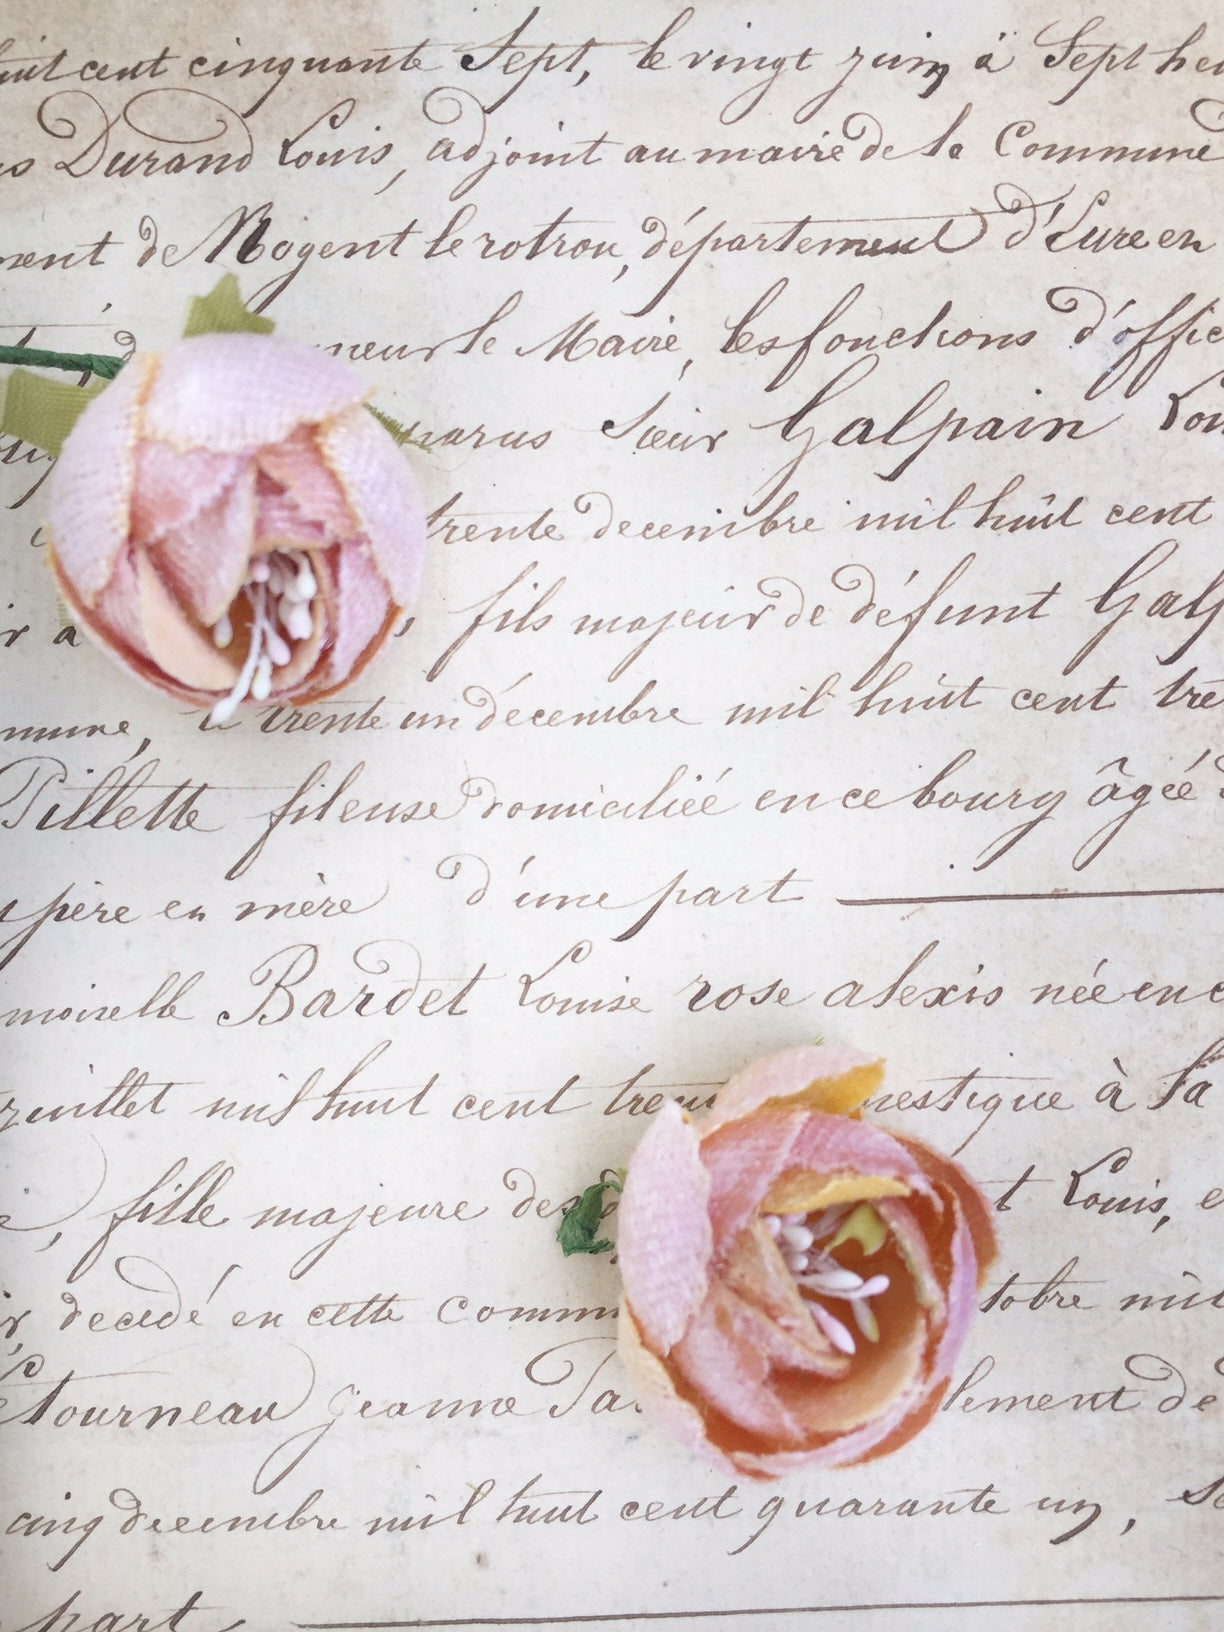 huit cent cinquante Sept, le vingt juin à Sept heu
Durand Louis, adjoint au maire de la Commune
ment de Nogent le rotrou, département d'Eure en
le Maire, les fonctions d'offic
parus Sieur Galpain Lou
trente decembre mil huit cent
r a , fils majeur de défunt Galp
mune, le trente un décembre mil huit cent tre
Pillette fileuse domiciliée en ce bourg âgée d
père en mère d'une part
moiselle Bardet Louise rose alexis née en c
juillet mil huit cent tren mestique à la
fille majeure des d t Louis, e
decedé en cette comm tobre mil
Letourneau Jeanne lement de
cinq decembre mil huit cent quarante un,
part